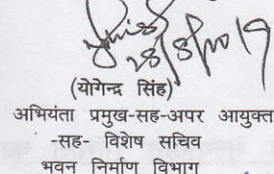 28/8/2019
(योगेन्द्र सिंह)
अभियंता प्रमुख-सह-अपर आयुक्त
सह- विशेष सचिव
भवन निर्माण विभाग